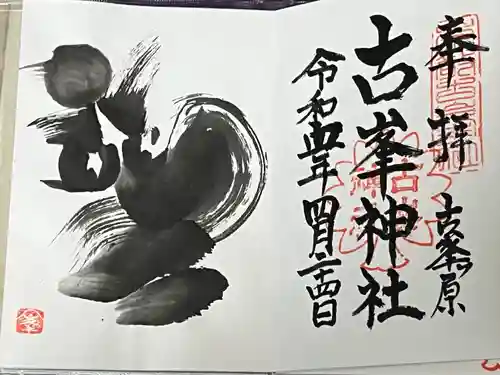 奉拝
古峯原
古峯神社
令和四年四月二十四日